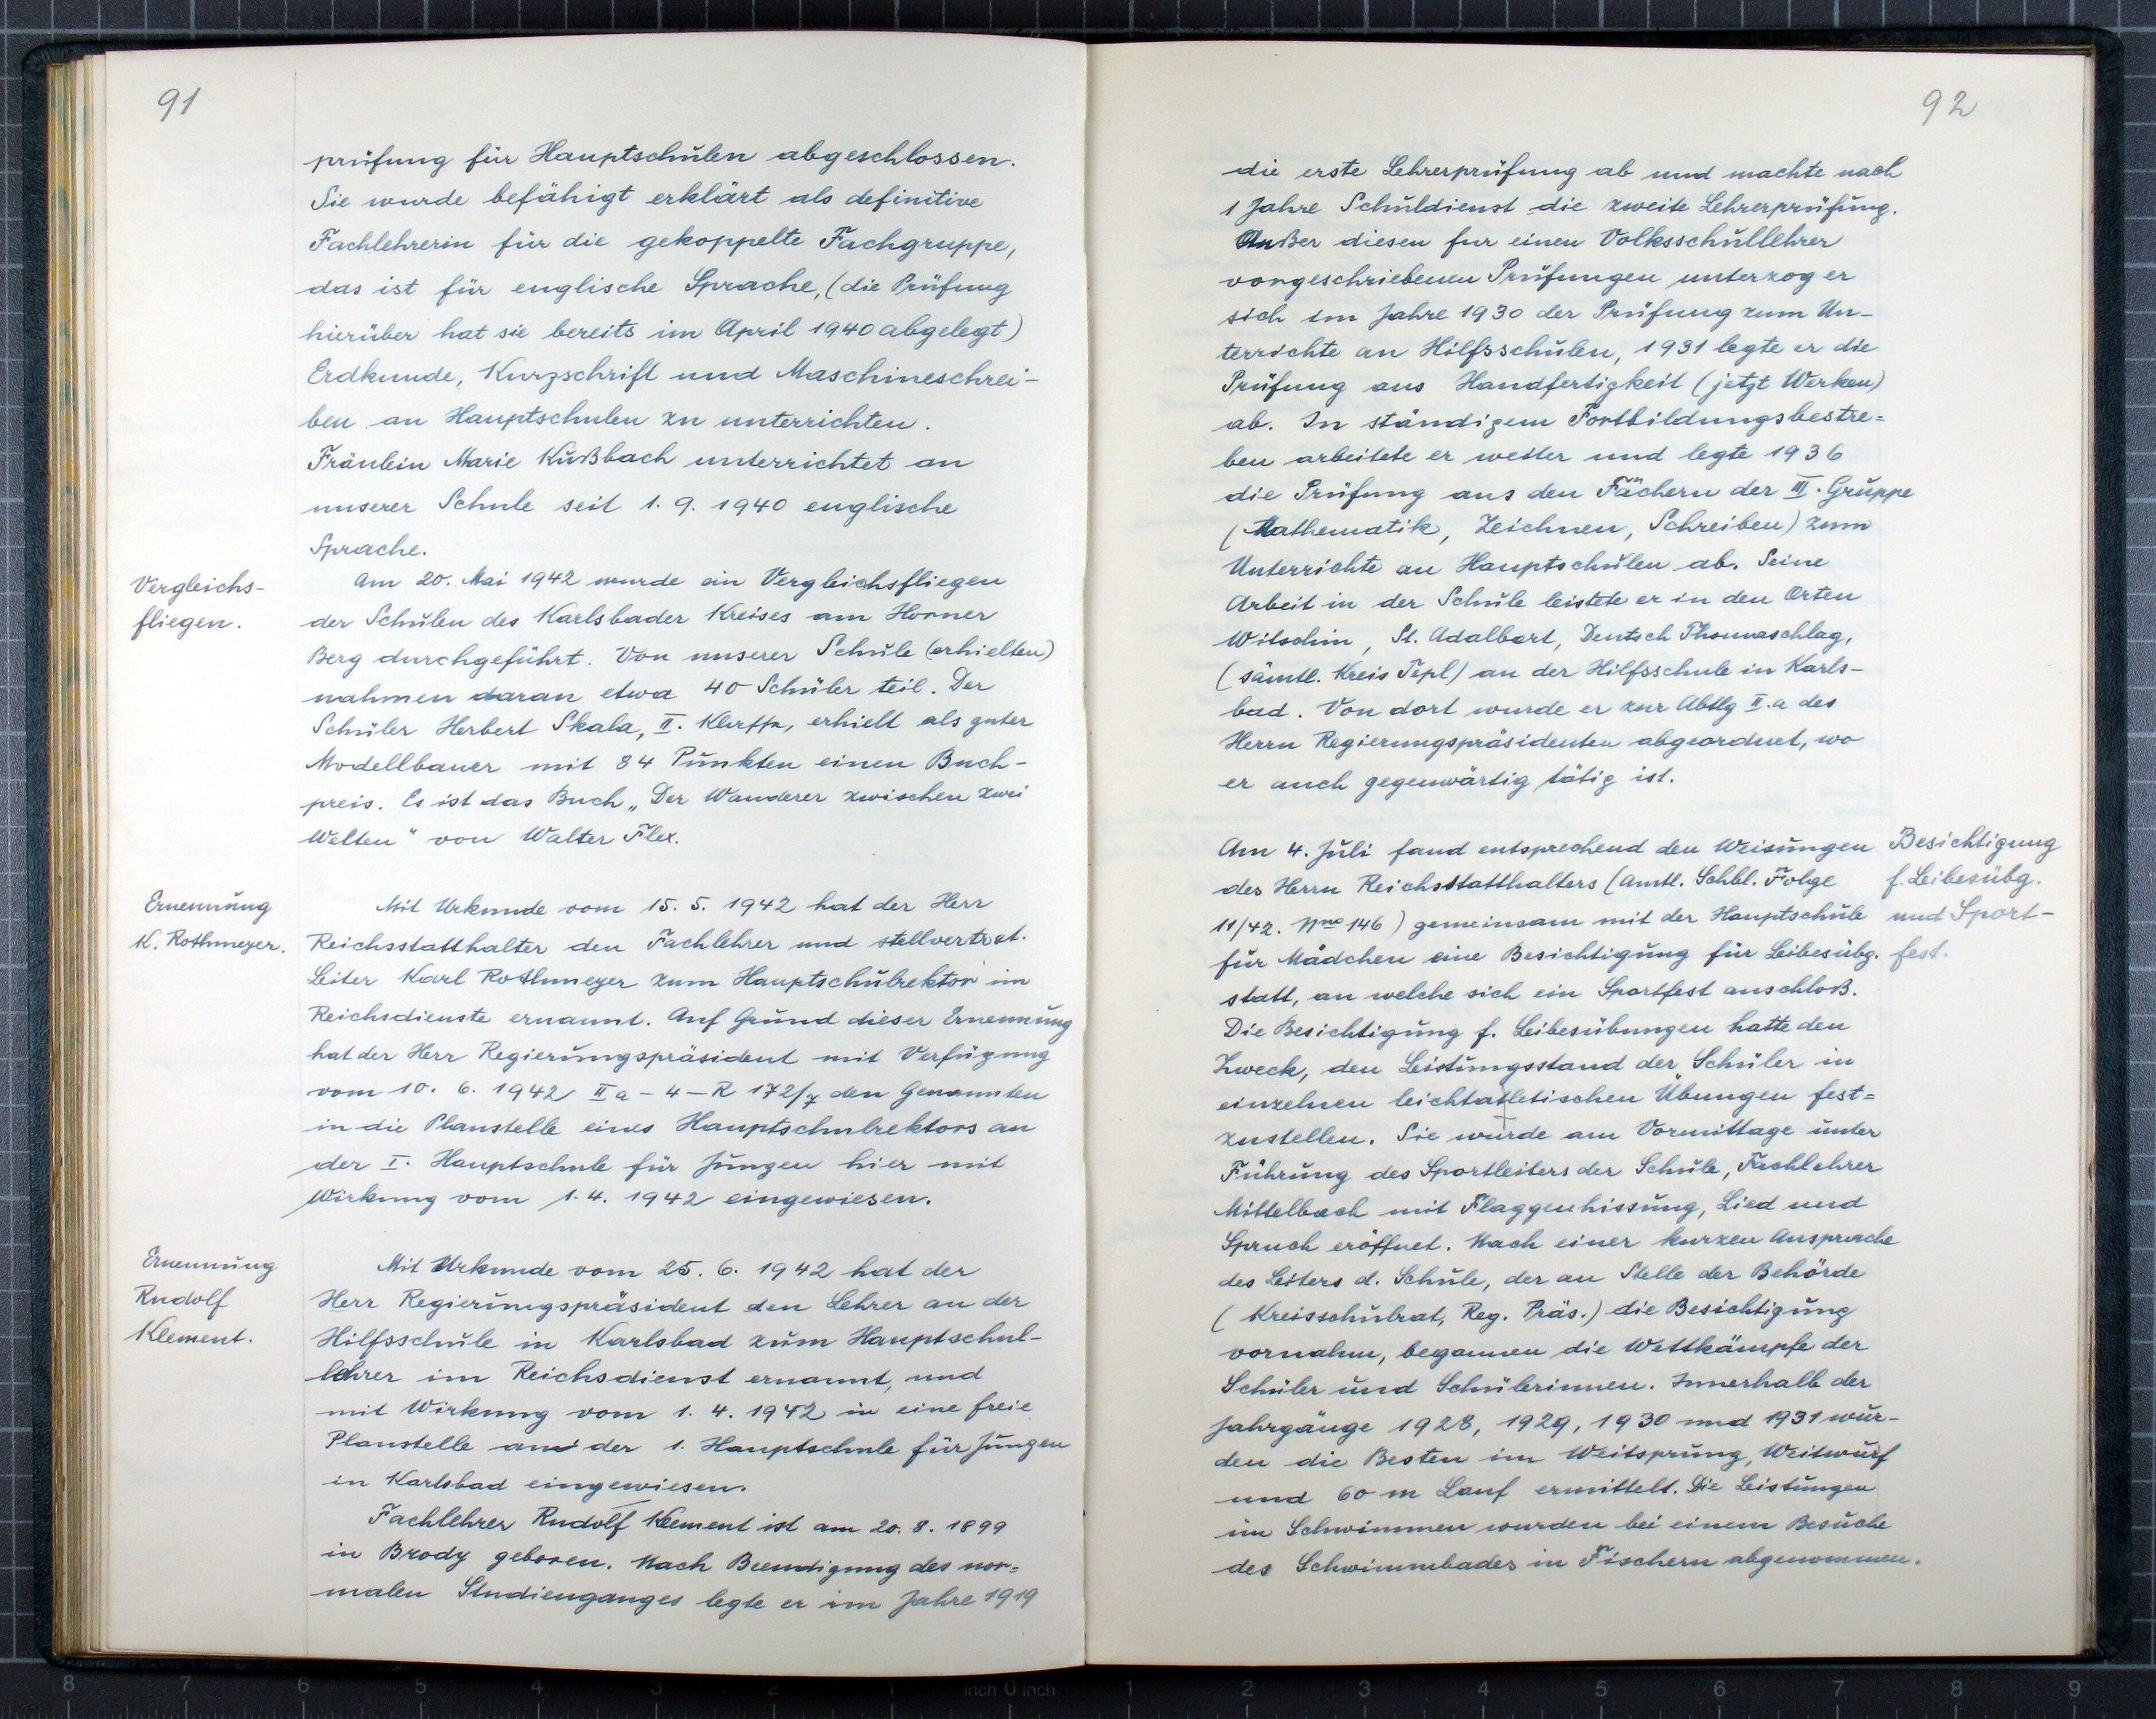 91
prüfung für Hauptschulen abgeschlossen.
Sie wurde befähigt erklärt als definitive
Fachlehrerin für die gekoppelte Fachgruppe,
das ist für englische Sprache, (die Prüfung
hierüber hat sie bereits im April 1940 abgelegt)
Erdkunde, Kurzschrift und Maschineschrei-
ben an Hauptschulen zu unterrichten.
Fräulein Marie Kußbach unterrichtet an
unserer Schule seit 1. 9. 1940 englische
Sprache.
Vergleichs-
fliegen.
Am 20. Mai 1942 wurde ein Vergleichsfliegen
der Schulen des Karlsbader Kreises am Horner
Berg durchgeführt. Von unserer Schule (erhielten)
nahmen daran etwa 40 Schüler teil. Der
Schüler Herbert Skala, II. Klasse, erhielt als guter
Modellbauer mit 84 Punkten einen Buch-
preis. Es ist das Buch „Der Wanderer zwischen zwei
Welten" von Walter Flex.
Ernennung
K. Rothmeyer.
Mit Urkunde vom 15. 5. 1942 hat der Herr
Reichsstatthalter den Fachlehrer und stellvertret.
Leiter Karl Rothmeyer zum Hauptschulrektor im
Reichsdienste ernannt. Auf Grund dieser Ernennung
hat der Herr Regierungspräsident mit Verfügung
vom 10. 6. 1942 II a - 4 - R 172/7 den Genannten
in die Planstelle eines Hauptschulrektors an
der I. Hauptschule für Jungen hier mit
Wirkung vom 1. 4. 1942 eingewiesen.
Ernennung
Rudolf
Klement.
Mit Urkunde vom 25. 6. 1942 hat der
Herr Regierungspräsident den Lehrer an der
Hilfsschule in Karlsbad zum Hauptschul-
lehrer im Reichsdienst ernannt, und
mit Wirkung vom 1. 4. 1942 in eine freie
Planstelle an der 1. Hauptschule für Jungen
in Karlsbad eingewiesen.
Fachlehrer Rudolf Klement ist am 20. 8. 1899
in Brody geboren. Nach Beendigung des nor=
malen Studienganges legte er im Jahre 1919
92
die erste Lehrerprüfung ab und machte nach
1 Jahre Schuldienst die zweite Lehrerprüfung.
Außer diesen fur einen Volksschullehrer
vorgeschriebenen Prüfungen unterzog er
sich im Jahre 1930 der Prüfung zum Un-
terrichte an Hilfsschulen, 1931 legte er die
Prüfung aus Handfertigkeit (jetzt Werken)
ab. In ständigem Fortbildungsbestre=
ben arbeitete er weiter und legte 1936
die Prüfung aus den Fächern der III. Gruppe
(Mathematik, Zeichnen, Schreiben) zum
Unterrichte an Hauptschulen ab. Seine
Arbeit in der Schule leistete er in den Orten
Witschin, St. Adalbert, Deutsch Thomaschlag,
(sämtl. Kreis Tepl) an der Hilfsschule in Karls-
bad. Von dort wurde er zur Abtlg II. a des
Herrn Regierungspräsidenten abgeordnet, wo
er auch gegenwärtig tätig ist.
Am 4. Juli fand entsprechend den Weisungen
des Herrn Reichsstatthalters (Amtl. Schbl. Folge
11/42. 146) gemeinsam mit der Hauptschule
für Mädchen eine Besichtigung für Leibesübg.
statt, an welche sich ein Sportfest anschloß.
Besichtigung
f. Leibesübg.
und Sport-
fest.
Die Besichtigung f. Leibesübungen hatte den
Zweck, den Leistungsstand der Schüler in
einzelnen leichtatletischen Übungen fest=
zustellen. Sie wurde am Vormittage unter
Führung des Sportleiters der Schule, Fachlehrer
Mittelbach mit Flaggenhissung, Lied und
Spruch eröffnet. Nach einer kurzen Ansprache
des Leiters d. Schule, der an Stelle der Behörde
(Kreisschulrat, Reg. Präs.) die Besichtigung
vornahm, begannen die Wettkämpfe der
Schüler und Schülerinnen. Innerhalb der
Jahrgänge 1928, 1929, 1930 und 1931 wur-
den die Besten im Weitsprung, Weitwurf
und 60 m Lauf ermittelt. Die Leistungen
im Schwimmen wurden bei einem Besuche
des Schwimmbades in Fischern abgenommen.
8 7 6 5 4 3 2 1 inch 0 inch 1 2 3 4 5 6 7 8 9